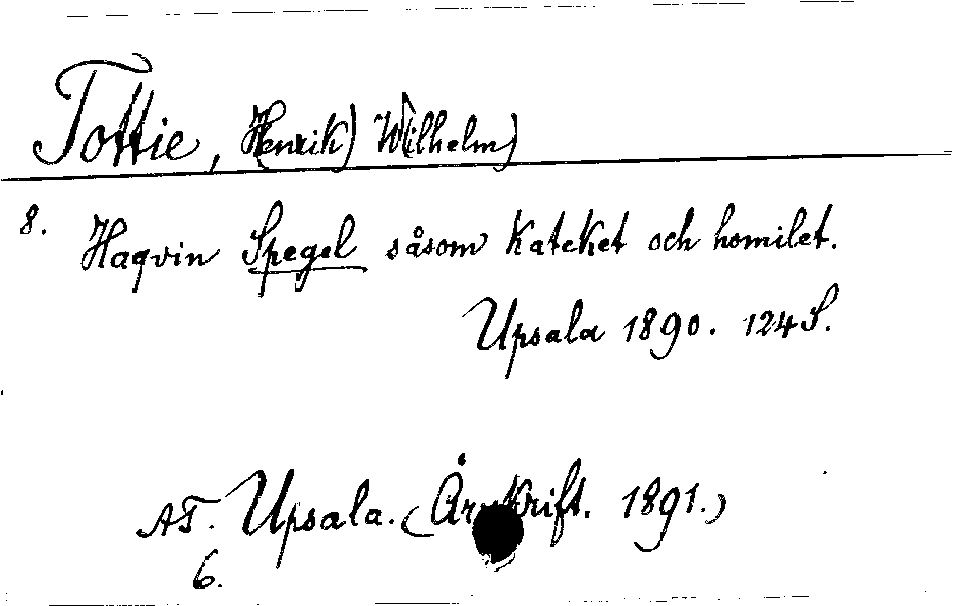 Tottie, H(enrik) W(ilhelm)
8. Haqvin Spegel såsom kateket och homilet.
Upsala 1890. 124 S.
AT. Upsala. (Årsskrift. 1891.)
6.